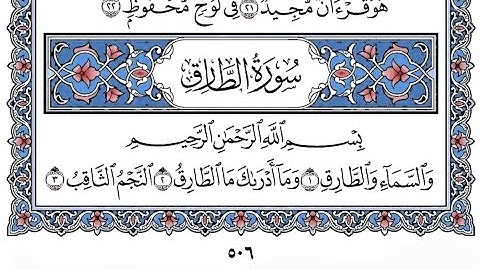 هُوَ قُرْءَانٌ مَّجِيدٌ ٢١ فِى لَوْحٍ مَّحْفُوظٍۭ ٢٢
سُورَةُ الطَّارِقِ
بِسْمِ ٱللَّهِ ٱلرَّحْمَٰنِ ٱلرَّحِيمِ
وَٱلسَّمَآءِ وَٱلطَّارِقِ ١ وَمَآ أَدْرَىٰكَ مَا ٱلطَّارِقُ ٢ ٱلنَّجْمُ ٱلثَّاقِبُ ٣
٥٠٦